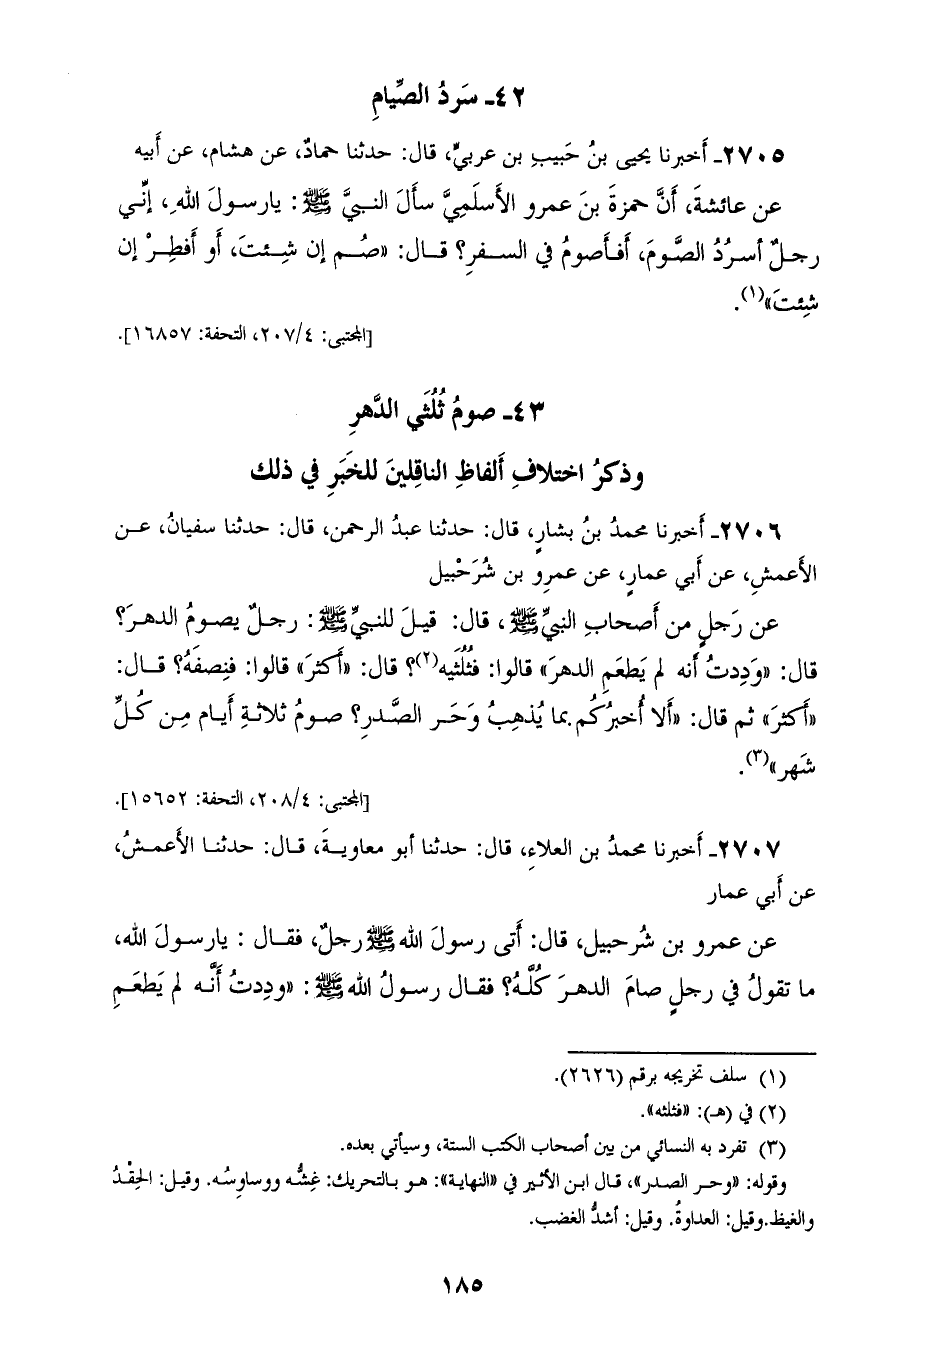 ٤٢ـ سَردُ الصِّيامِ
٢٧٠٥ـ أَخبرنا يحيى بنُ حَبيبِ بن عربيٍّ، قال: حدثنا حمادٌ، عن هشام، عن أَبيه
عن عائشةَ، أَنَّ حمزةَ بنَ عمرو الأسلَمِيَّ سألَ النبيَّ ﷺ: يارسولَ اللهِ، إنِّي
رجلٌ أسرُدُ الصَّومَ، أَفأصومُ في السفرِ؟ قال: «صُم إن شِئتَ، أَو أَفطِرْ إن
شِئتَ»(١).
[المجتبى: ٢٠٧/٤، التحفة: ١٦٨٥٧].
٤٣ـ صومُ ثُلُثَي الدَّهرِ
وذكرُ اختلافِ أَلفاظِ الناقِلينَ للخَبَرِ في ذلك
٢٧٠٦ـ أَخبرنا محمدُ بنُ بشارٍ، قال: حدثنا عبدُ الرحمن، قال: حدثنا سفيانُ، عن
الأَعمشِ، عن أَبي عمارٍ، عن عمرِو بن شُرَحْبيل
عن رَجلٍ من أَصحابِ النبيِّ ﷺ، قال: قيلَ للنبيِّ ﷺ: رجلٌ يصومُ الدهرَ؟
قال: «وَدِدتُ أنه لم يَطعَمِ الدهرَ» قالوا: فثُلُثَيه(٢)؟ قال: «أَكثرَ» قالوا: فنِصفَهُ؟ قال:
«أَكثرَ» ثم قال: «أَلا أُخبرُكُم بما يُذهِبُ وَحَر الصَّدرِ؟ صومُ ثلاثةِ أَيام مِن كُلِّ
شَهر»(٣).
[المجتبى: ٢٠٨/٤، التحفة: ١٥٦٥٢].
٢٧٠٧ـ أَخبرنا محمدُ بن العلاءِ، قال: حدثنا أبو معاويةَ، قال: حدثنا الأَعمشُ،
عن أَبي عمار
عن عمرو بن شُرحبيل، قال: أَتى رسولَ الله ﷺ رجلٌ، فقال : يارسولَ الله،
ما تقولُ في رجلٍ صامَ الدهرَ كُلَّهُ؟ فقال رسولُ الله ﷺ: «ودِدتُ أَنَّه لم يَطعَمِ
(١) سلف تخريجه برقم (٢٦٢٦).
(٢) في (هـ): «فثلثه».
(٣) تفرد به النسائي من بين أصحاب الكتب الستة، وسيأتي بعده.
وقوله: «وحر الصدر»، قال ابن الأثير في «النهاية»: هو بالتحريك: غِشُّه ووساوِسُه. وقيل: الحِقْدُ
والغيظ.وقيل: العداوةُ. وقيل: أشدُّ الغضب.
١٨٥